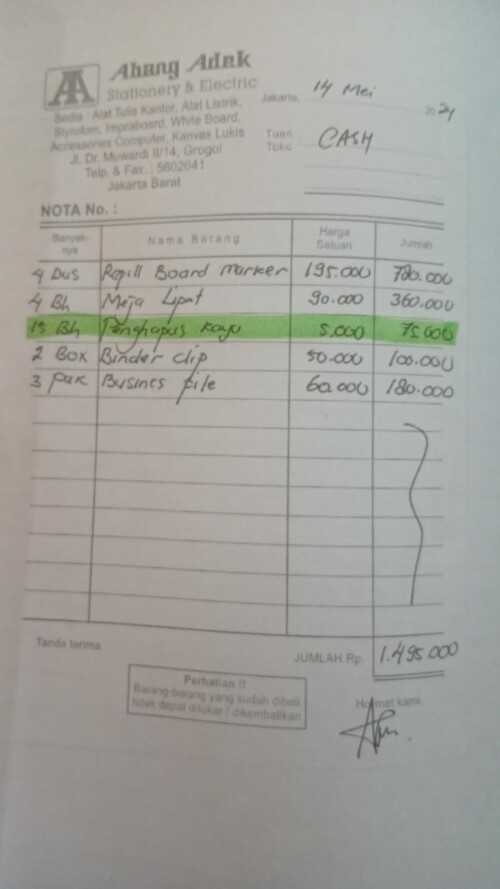 AA Abang Adek
Stationery & Electric
Sedia : Alat Tulis Kantor, Alat Listrik,
Styrofom, Impraboard, White Board,
Accessories Computer, Kanvas Lukis
Jl. Dr. Muwardi II/14, Grogol
Telp. & Fax. : 5602041
Jakarta Barat
Jakarta, 14 Mei 2021
Tuan
Toko CASH
NOTA No. :
Banyak-nya Nama Barang Harga Satuan Jumlah
4 Dus Refill Board Marker 195.000 780.000
4 Bh Meja Lipat 90.000 360.000
15 Bh Penghapus Kayu 5.000 75.000
2 Box Binder clip 50.000 100.000
3 pak Busines file 60.000 180.000
Tanda terima
JUMLAH Rp. 1.495.000
Perhatian !!
Barang-barang yang sudah dibeli
tidak dapat ditukar / dikembalikan
Hormat kami,